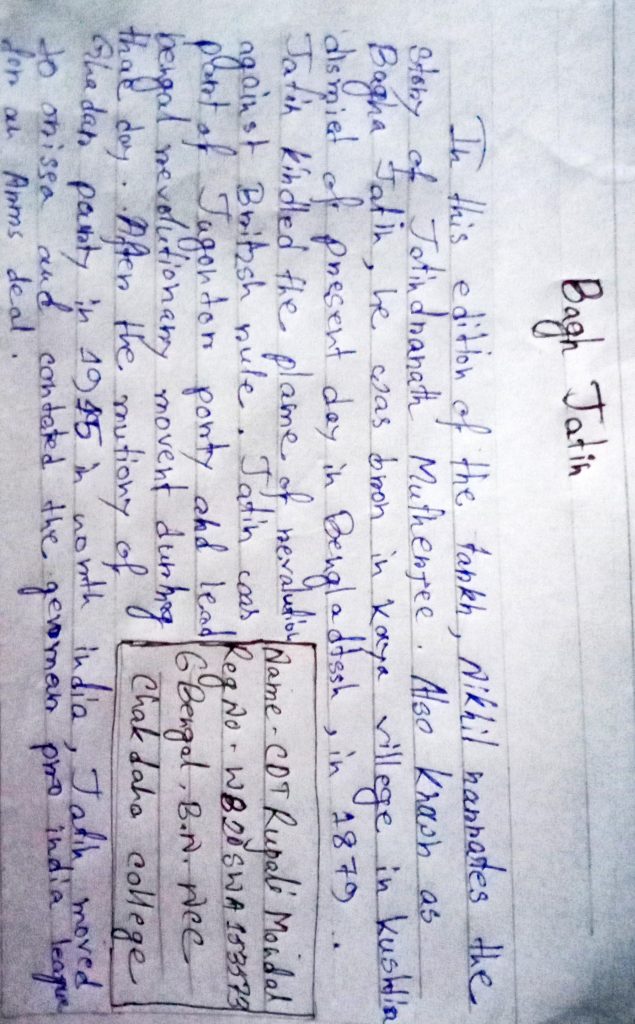 Bagh Jatin
In this edition of the tarikh, Nikhil narrates the
story of Jatindranath Mutherjee. Also Krawn as
Bagha Jatin, he was bron in Kaya villege in kushtia
dismiet of present day in Bengladissh, in 1879 ..
Jatin kindled the flame of revalution
against British rule. Jatin was
part of Jugantor party and lead
bengal revolutionary movent during
that day. After the mutiony of
Ghadar party in 1915 in north india, Jatin moved
to orissa and contated the geroman pro india league
for an Arms deal.
Name - CDT Rupali Mondal
Reg No - WB20SWA153573
6 Bengal, B.N. NCC
Chakdaha college